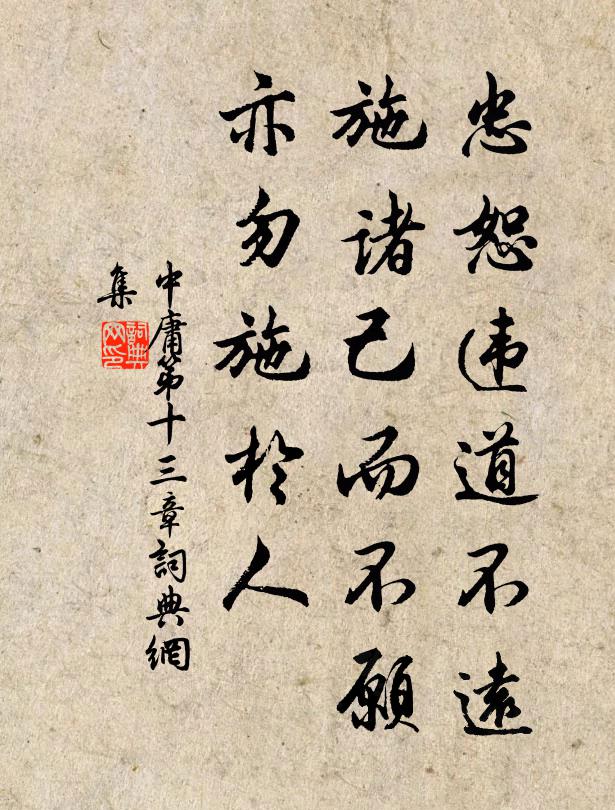 忠恕违道不遠
施诸己而不願
亦勿施於人
中庸第十三章詞典網
集
詞典网印